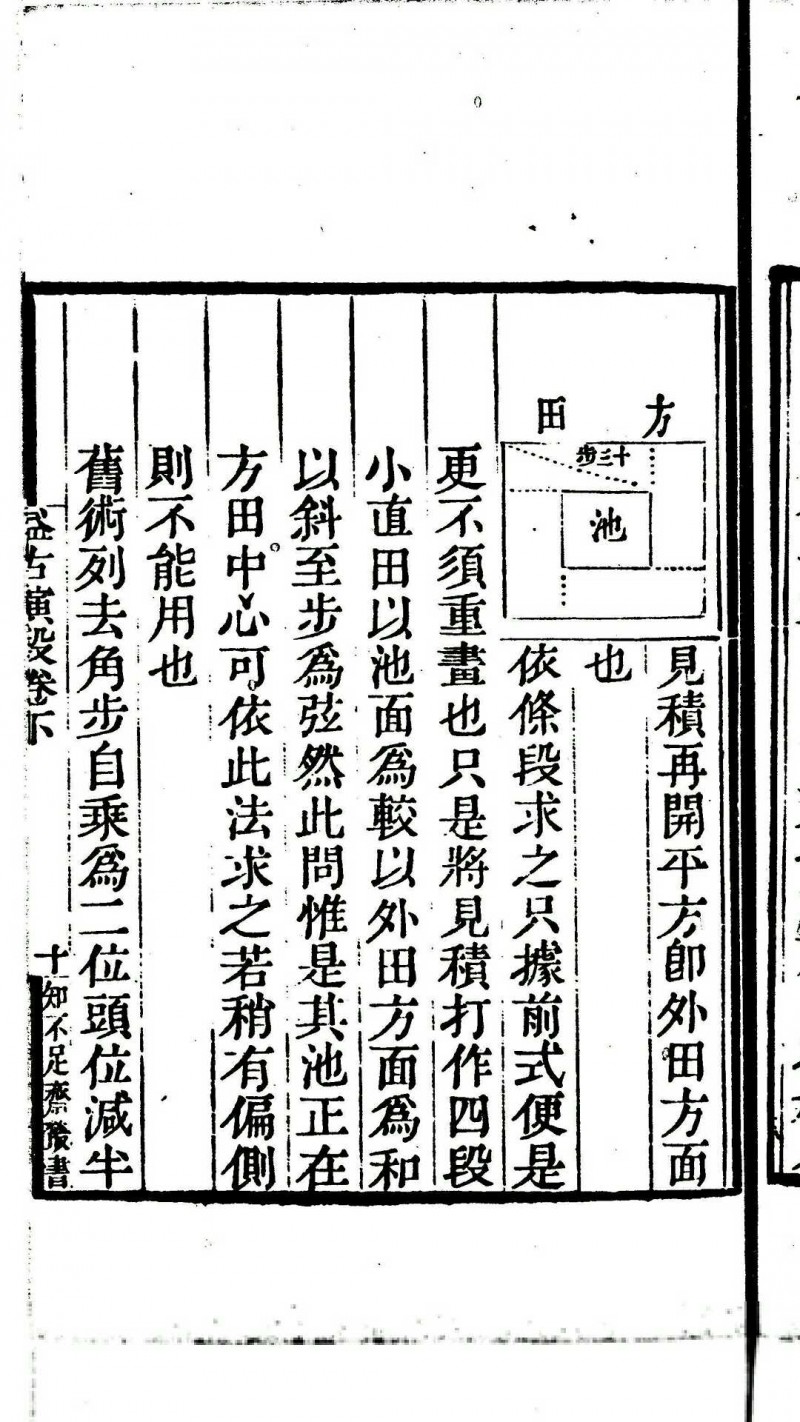 方田
十三步
池
見積再開平方卽外田方面
也
依條段求之只據前式便是
更不須重畫也只是將見積打作四段
小直田以池面爲較以外田方面爲和
以斜至步爲弦然此問惟是其池正在
方田中心可依此法求之若稍有偏側
則不能用也
舊術列去角步自乘爲二位頭位減半
益古演段卷下
十
知不足齋叢書